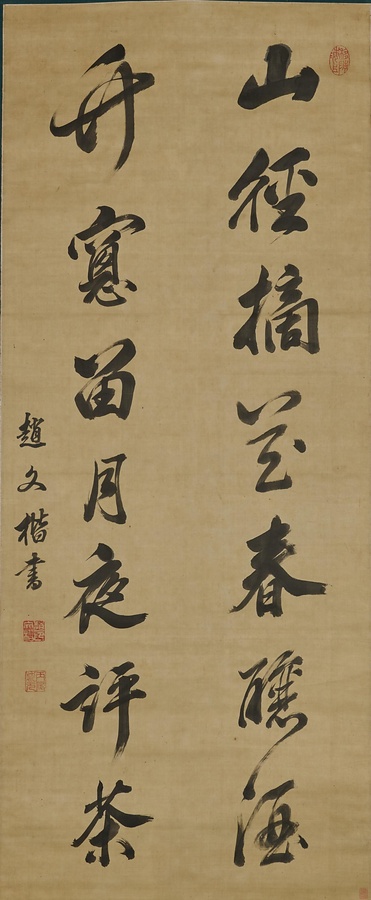 山徑摘花春釀酒
竹窓留月夜評茶
趙文楷書